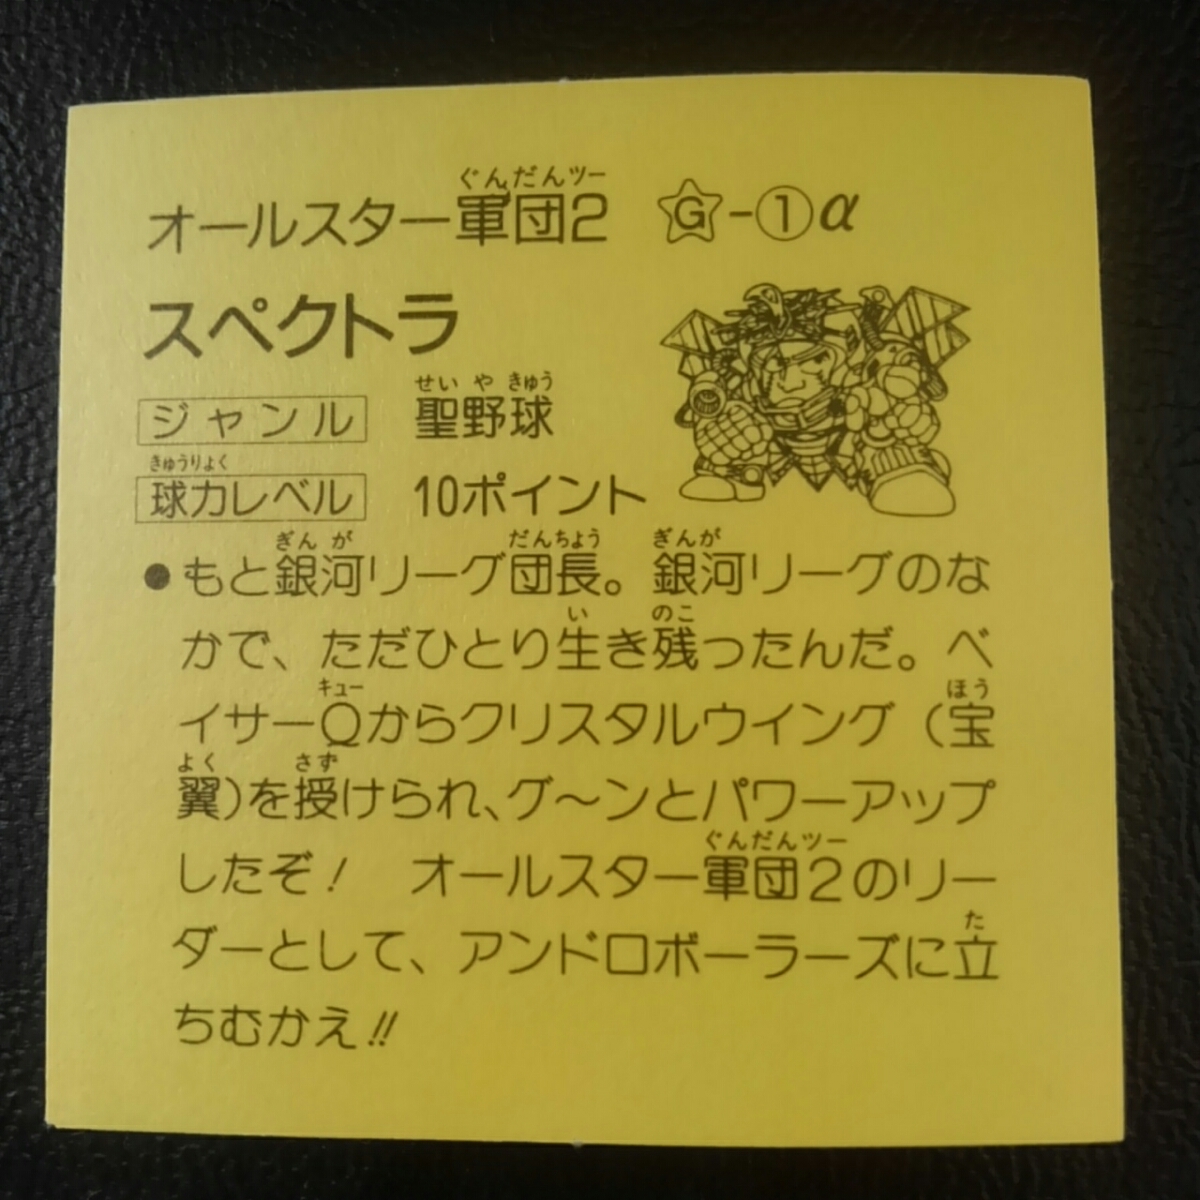 オールスター軍団2 G-①α
ぐんだんツー
スペクトラ
ジャンル 聖野球
せいやきゅう
球力レベル 10ポイント
きゅうりょく
●もと銀河リーグ団長。銀河リーグのな
ぎんが だんちょう ぎんが
かで、ただひとり生き残ったんだ。ベ
い のこ
イサーQからクリスタルウイング(宝
キュー ほう
翼)を授けられ、グ〜ンとパワーアップ
よく さず
したぞ! オールスター軍団2のリー
ぐんだんツー
ダーとして、アンドロボーラーズに立
た
ちむかえ!!